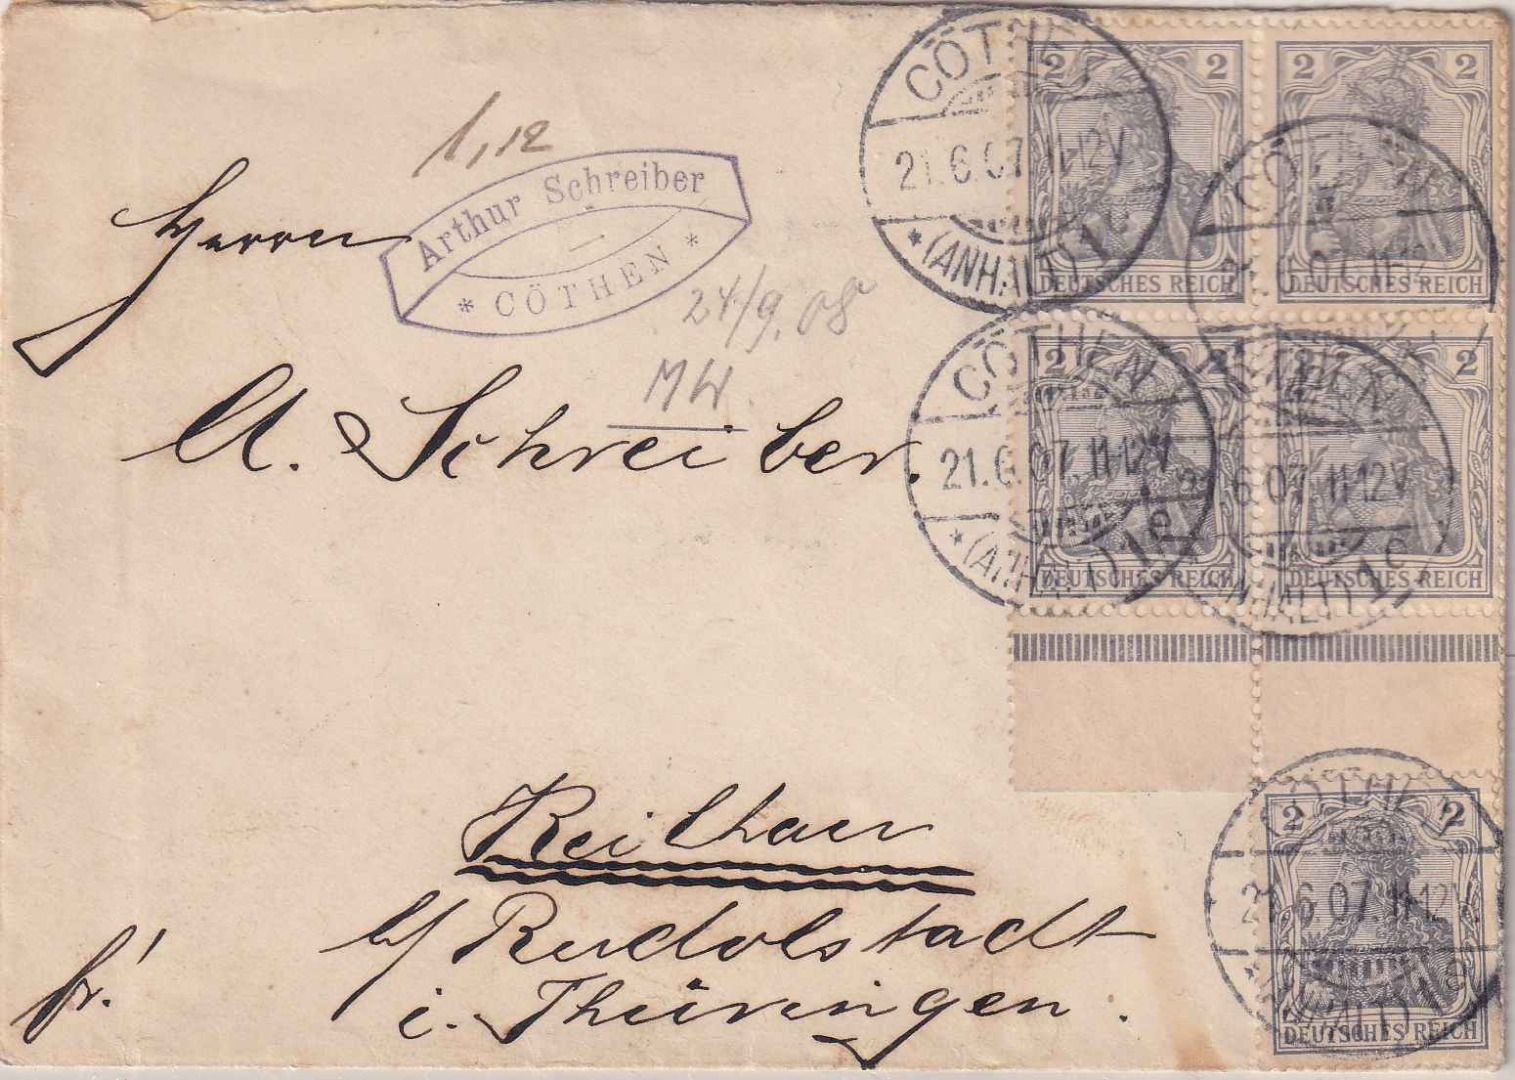 1,12
Arthur Schreiber
* CÖTHEN *
Herrn
24/9. 08
MW.
A. Schreiber.
Keilhau
b/ Rudolstadt
i. Thüringen.
fr.
2 2
DEUTSCHES REICH
2 2
DEUTSCHES REICH
2 2
DEUTSCHES REICH
2 2
DEUTSCHES REICH
2 2
DEUTSCHES REICH
CÖTHEN
21.6.07.11-12V
* (ANHALT) 1e
CÖTHEN
6.07.11-12
CÖTHEN
21.6.07.11-12V
* (ANHALT) 1e
CÖTHEN
6.07.11-12V
(ANHALT) 1e
CÖTHEN
21.6.07.11-12V
* (ANHALT) 1e